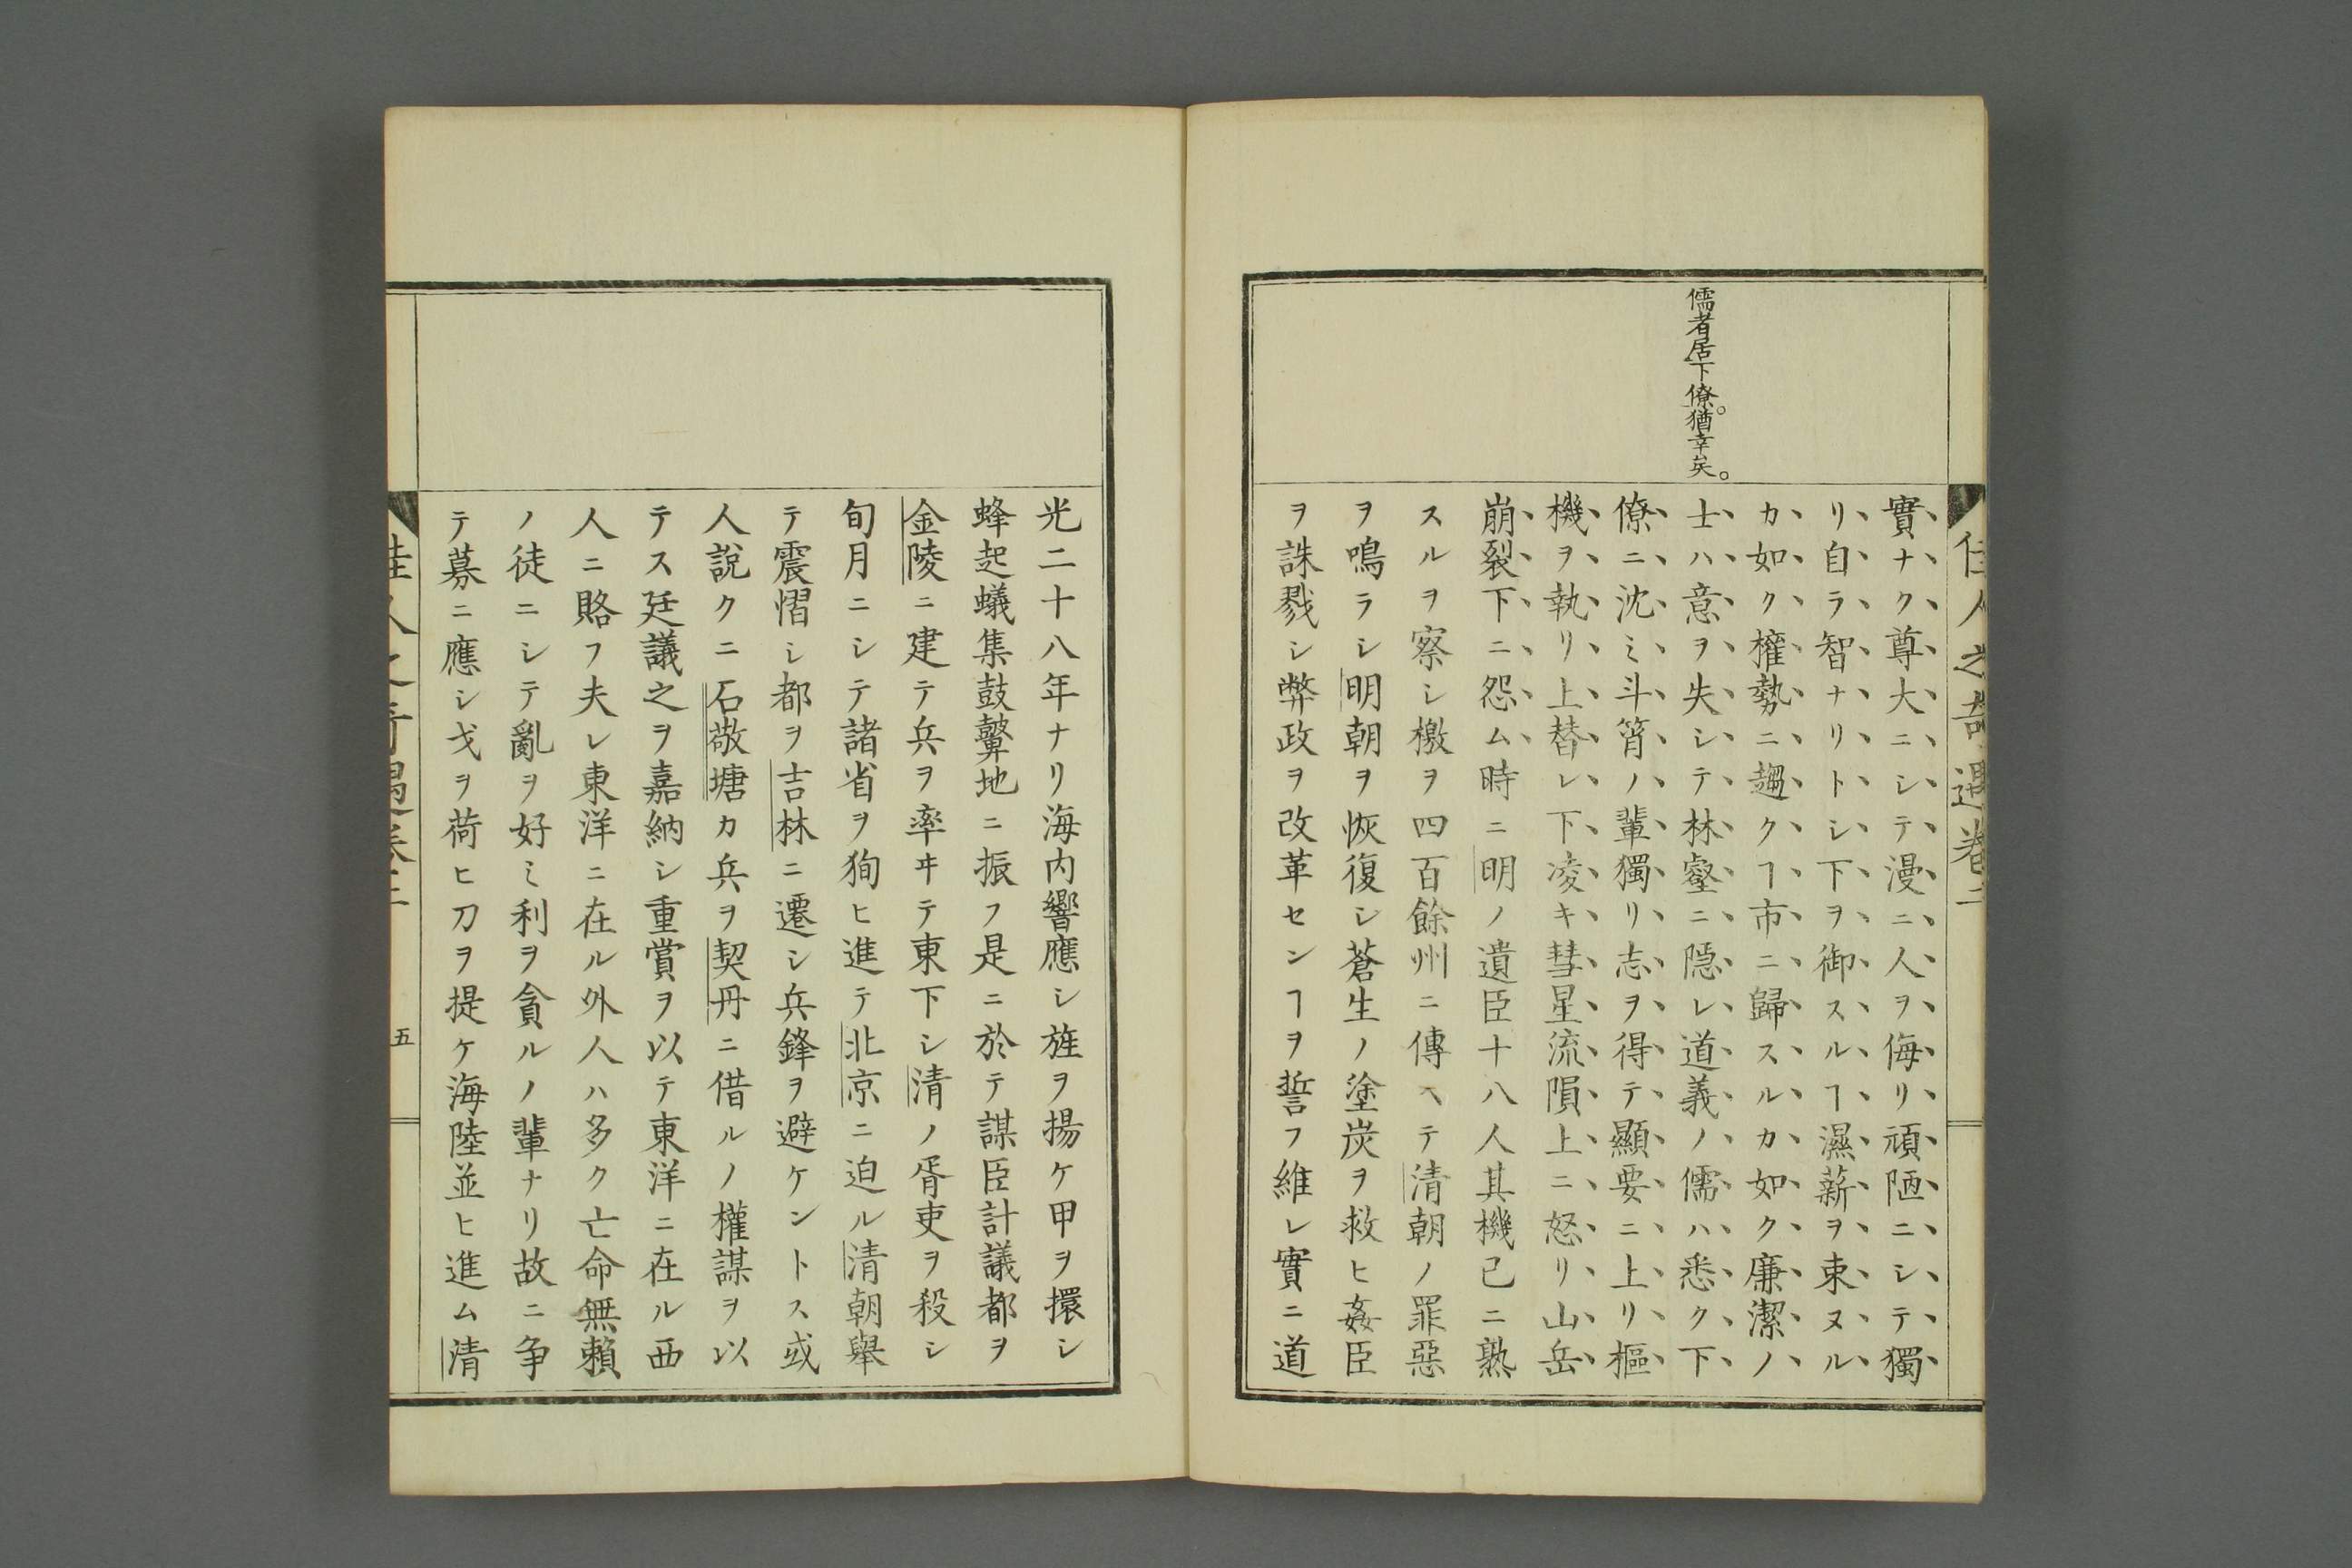 佳人之奇遇卷二
儒者居下僚。猶幸矣。
實ナク尊大ニシテ漫ニ人ヲ侮リ頑陋ニシテ獨
リ自ラ智ナリトシ下ヲ御スルヿ濕薪ヲ束ヌル
カ如ク權勢ニ趨クヿ市ニ歸スルカ如ク廉潔ノ
士ハ意ヲ失シテ林壑ニ隱レ道義ノ儒ハ悉ク下
僚ニ沈ミ斗筲ノ輩獨リ志ヲ得テ顯要ニ上リ樞
機ヲ執リ上替レ下凌キ彗星流隕上ニ怒リ山岳
崩裂下ニ怨ム時ニ明ノ遺臣十八人其機已ニ熟
スルヲ察シ檄ヲ四百餘州ニ傳ヘテ清朝ノ罪惡
ヲ鳴ラシ明朝ヲ恢復シ蒼生ノ塗炭ヲ救ヒ姦臣
ヲ誅戮シ弊政ヲ改革センヿヲ誓フ維レ實ニ道
光二十八年ナリ海内響應シ旌ヲ揚ケ甲ヲ擐シ
蜂起蟻集鼓鼙地ニ振フ是ニ於テ謀臣計議都ヲ
金陵ニ建テ兵ヲ率ヰテ東下シ清ノ胥吏ヲ殺シ
旬月ニシテ諸省ヲ狥ヒ進テ北京ニ迫ル清朝舉
テ震慴シ都ヲ吉林ニ遷シ兵鋒ヲ避ケントス或
人說クニ石敬塘カ兵ヲ契丹ニ借ルノ權謀ヲ以
テス廷議之ヲ嘉納シ重賞ヲ以テ東洋ニ在ル西
人ニ賂フ夫レ東洋ニ在ル外人ハ多ク亡命無賴
ノ徒ニシテ亂ヲ好ミ利ヲ貪ルノ輩ナリ故ニ争
テ募ニ應シ戈ヲ荷ヒ刀ヲ提ケ海陸並ヒ進ム清
佳人之奇遇卷二
五